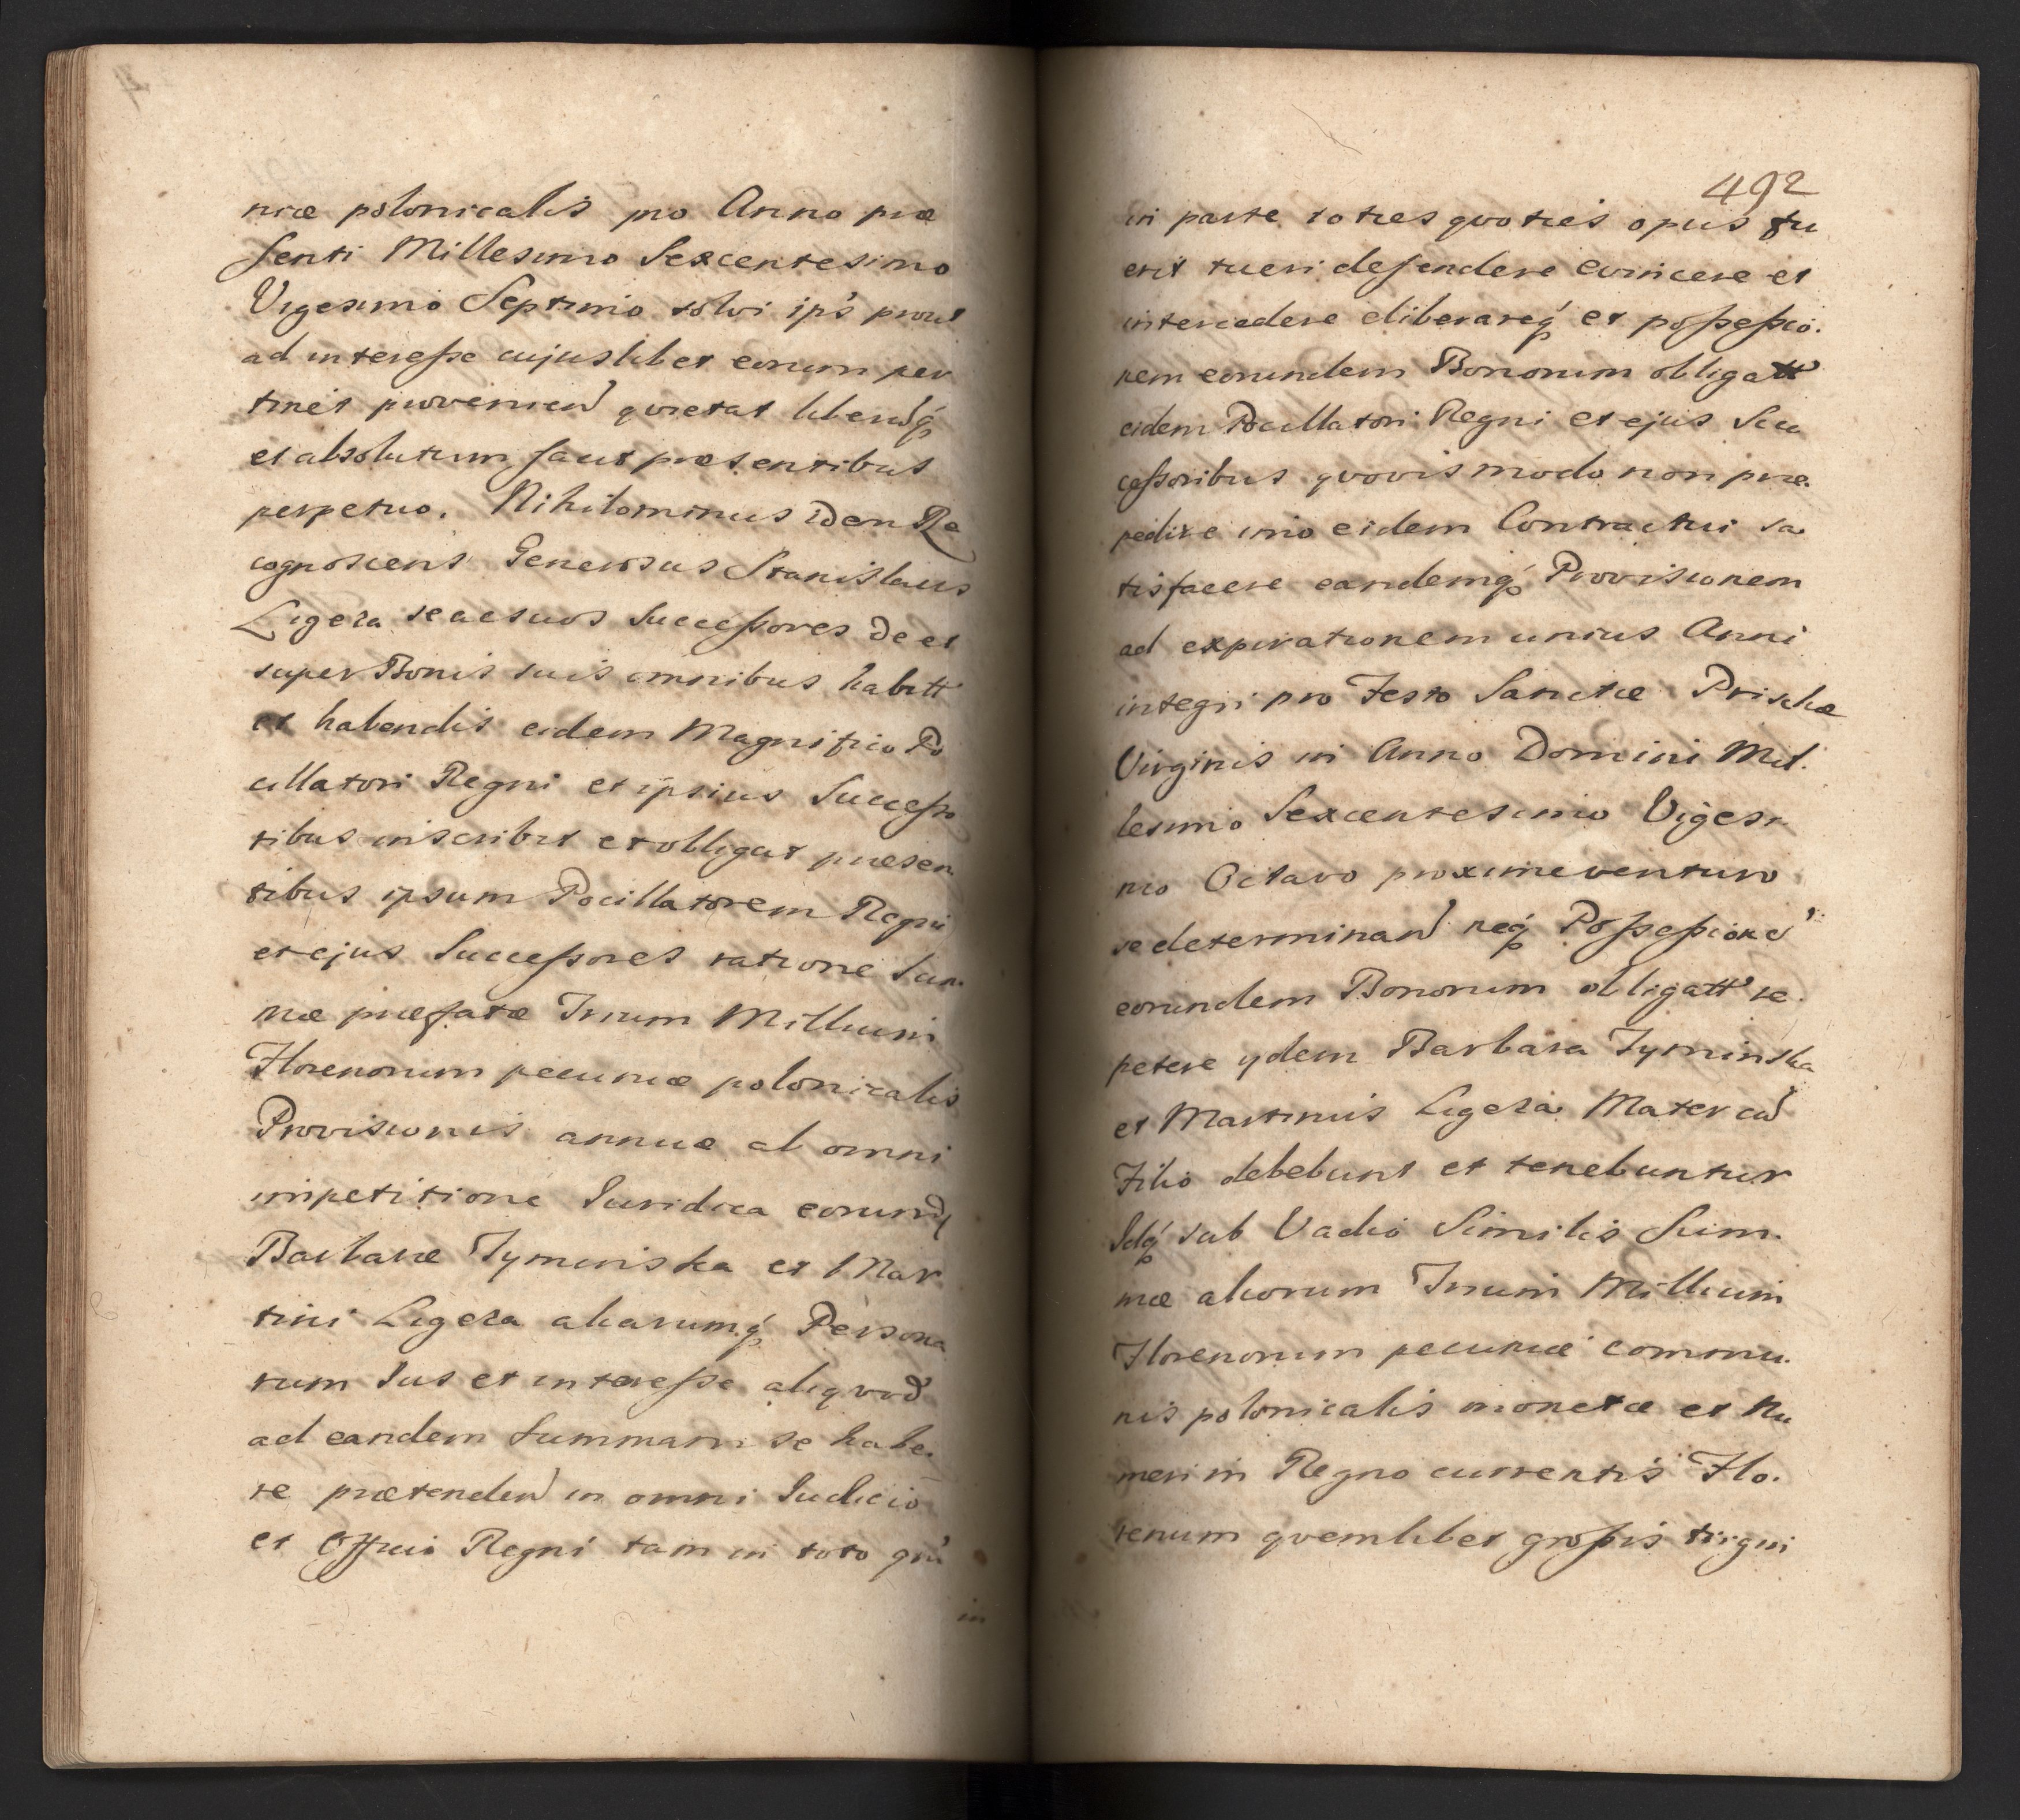 niæ polonicalis pro Anno præ
senti Millesimo Sexcentesimo
Vigesimo Septimo solvi ips prout
ad interesse cujuslibet eorum per
tinet provenien quietat liberúq
et absolutum facit præsentibus
perpetuo. Nihilominus idem Re
cognoscens Generosus Stanislaus
Ligeza se ac suos Successores de et
super Bonis suis omnibus habitt
et habendis eidem Magnifico Po
cillatori Regni et ipsius Successo
ribus inscribit et obligat præsen
tibus ipsum Pocillatorem Regni
et ejus Successores ratione Sum.
mæ præfatæ Trium Millium
Florenorum pecuniæ polonicalis
Provisionis annuæ ab omni
impetitione Iuridica eorund
Barbaræ Tyminska et Mar
tini Ligeza aliarumq Persona
rum Ius et interesse aliqvod
ad eandem Summam se habe.
re prætenden in omni Iudicio
et Officio Regni tam in toto qm
in
492
in parte toties quoties opus fu
erit tueri defendere evincere et
intercedere eliberareq et possessio.
nem eorundem Bonorum obligatt
eidem Pocillatori Regni et ejus Suc
cessoribus qvovis modo non præ.
pedire imo eidem Contractui sa
tisfacere eandemq Provisionem
ad expirationem unius Anni
integri pro Festo Sanctæ Priscæ
Virginis in Anno Domini Mil.
lesimo Sexcentesimo Vigesi
mo Octavo proxime venturo
se determinan neq Possessione
eorundem Bonorum obligatt re.
petere ydem Barbara Tyminska
et Martinus Ligeza Mater cu
Filio debebunt et tenebuntur
Idq sub Vadio Similis Sum.
mæ aliorum Trium Millium
Florenorum pecuniæ commu.
nis polonicalis monetæ et Nu
meri in Regno currentis Flo.
renum qvemlibet grossis trigin